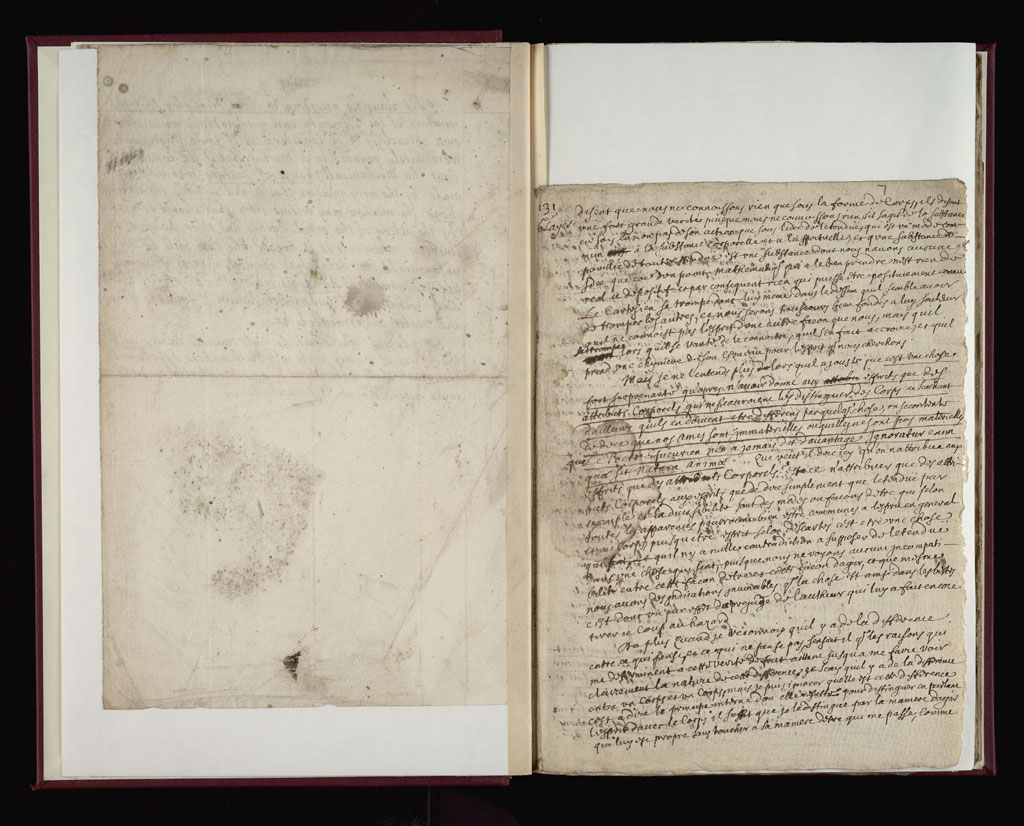 7
131 disent que nous ne connoissons rien que sous la forme de Corps, ils disent
une fort grande verité puisque nous ne connoissons rien s'il s'agit de la substance
en soy, de son acte que sous l'idée de l'etendue, qui est un mode com-
mun a la substance Corporelle et a la spirituelle et qu'une substance de-
pouillée de tout est une substance dont nous n'avons aucune
Idée que comme d'un point Mathematiq a le bien prendre n'est rien de
reel et de positif et par consequent rien qui puisse etre positivement connu
Le Cartesien se trompe donc luy meme dans le dessein qu'il semble avoir
de tromper les autres, et nous serons toujours bien fondés a luy soutenir
qu'il ne connoist pas l'esprit d'une autre façon que nous, mais qu'il
se trompe lors qu'il se vante de le connoitre, qu'il s'en fait accroire, et qu'il
prend une chymere de son cerveau pour l'esprit que nous cherchons
Mais je ne l'entend plus lors qu'il ajouste que c'est une chose
fort surprenante qu'apres n'avoir donné aux esprits que des
attributs Corporels, qui ne sçauroient les distinguer des Corps en sachant
d'ailleurs qu'ils en doivent etre differens par quelque chose, on se contente
de dire que nos ames sont immaterielles ou qu'elles ne sont pas materielles
que le Poete Epicurien n'en a jamais dit davantage Ignoratur enim
quæ sit natura animæ. Que veut il dire icy qu'on n'attribue aux
esprits que des attributs Corporels: est ce n'attribuer que des attri-
buts Corporels aux esprits que de dire simplement que l'etendue par
exemple et la divisibilité sont des modes ou façons d'etre qui selon
toutes les apparences pourroient bien estre communes a l'esprit en general
et au corps, puisqu'etre esprit selon Descartes c'est etre une chose
qui pense, et qu'il n'y a nulle contradiction a supposer de l'etendue
dans une chose qui sent, puisque nous ne voyons aucune incompati-
bilité entre cette façon d'etre et cette façon d'agir, et que mesme
nous avons des indications invincibles que la chose est ainsi dans les bestes
c'est donc un pur effet du prejugé de l'autheur qui luy a fait encore
tirer ce coup au hazard
De plus Quand je reconnois qu'il y a de la difference
entre ce qui pense et ce qui ne pense pas, s'ensuit il que les raisons qui
me determinent a cette verité de fait aillent jusqu'a me faire voir
clairement la nature de cette difference, je sçais qu'il y a de la difference
entre un corps et un corps, mais je puis ignorer quelle est cette difference
c'est a dire le principe interne d'ou elle resulte, pour distinguer en parlant
l'esprit d'avec le Corps il suffit que je le distingue par la maniere d'agir
qui luy est propre sans toucher a sa maniere d'etre qui me passe, Comme